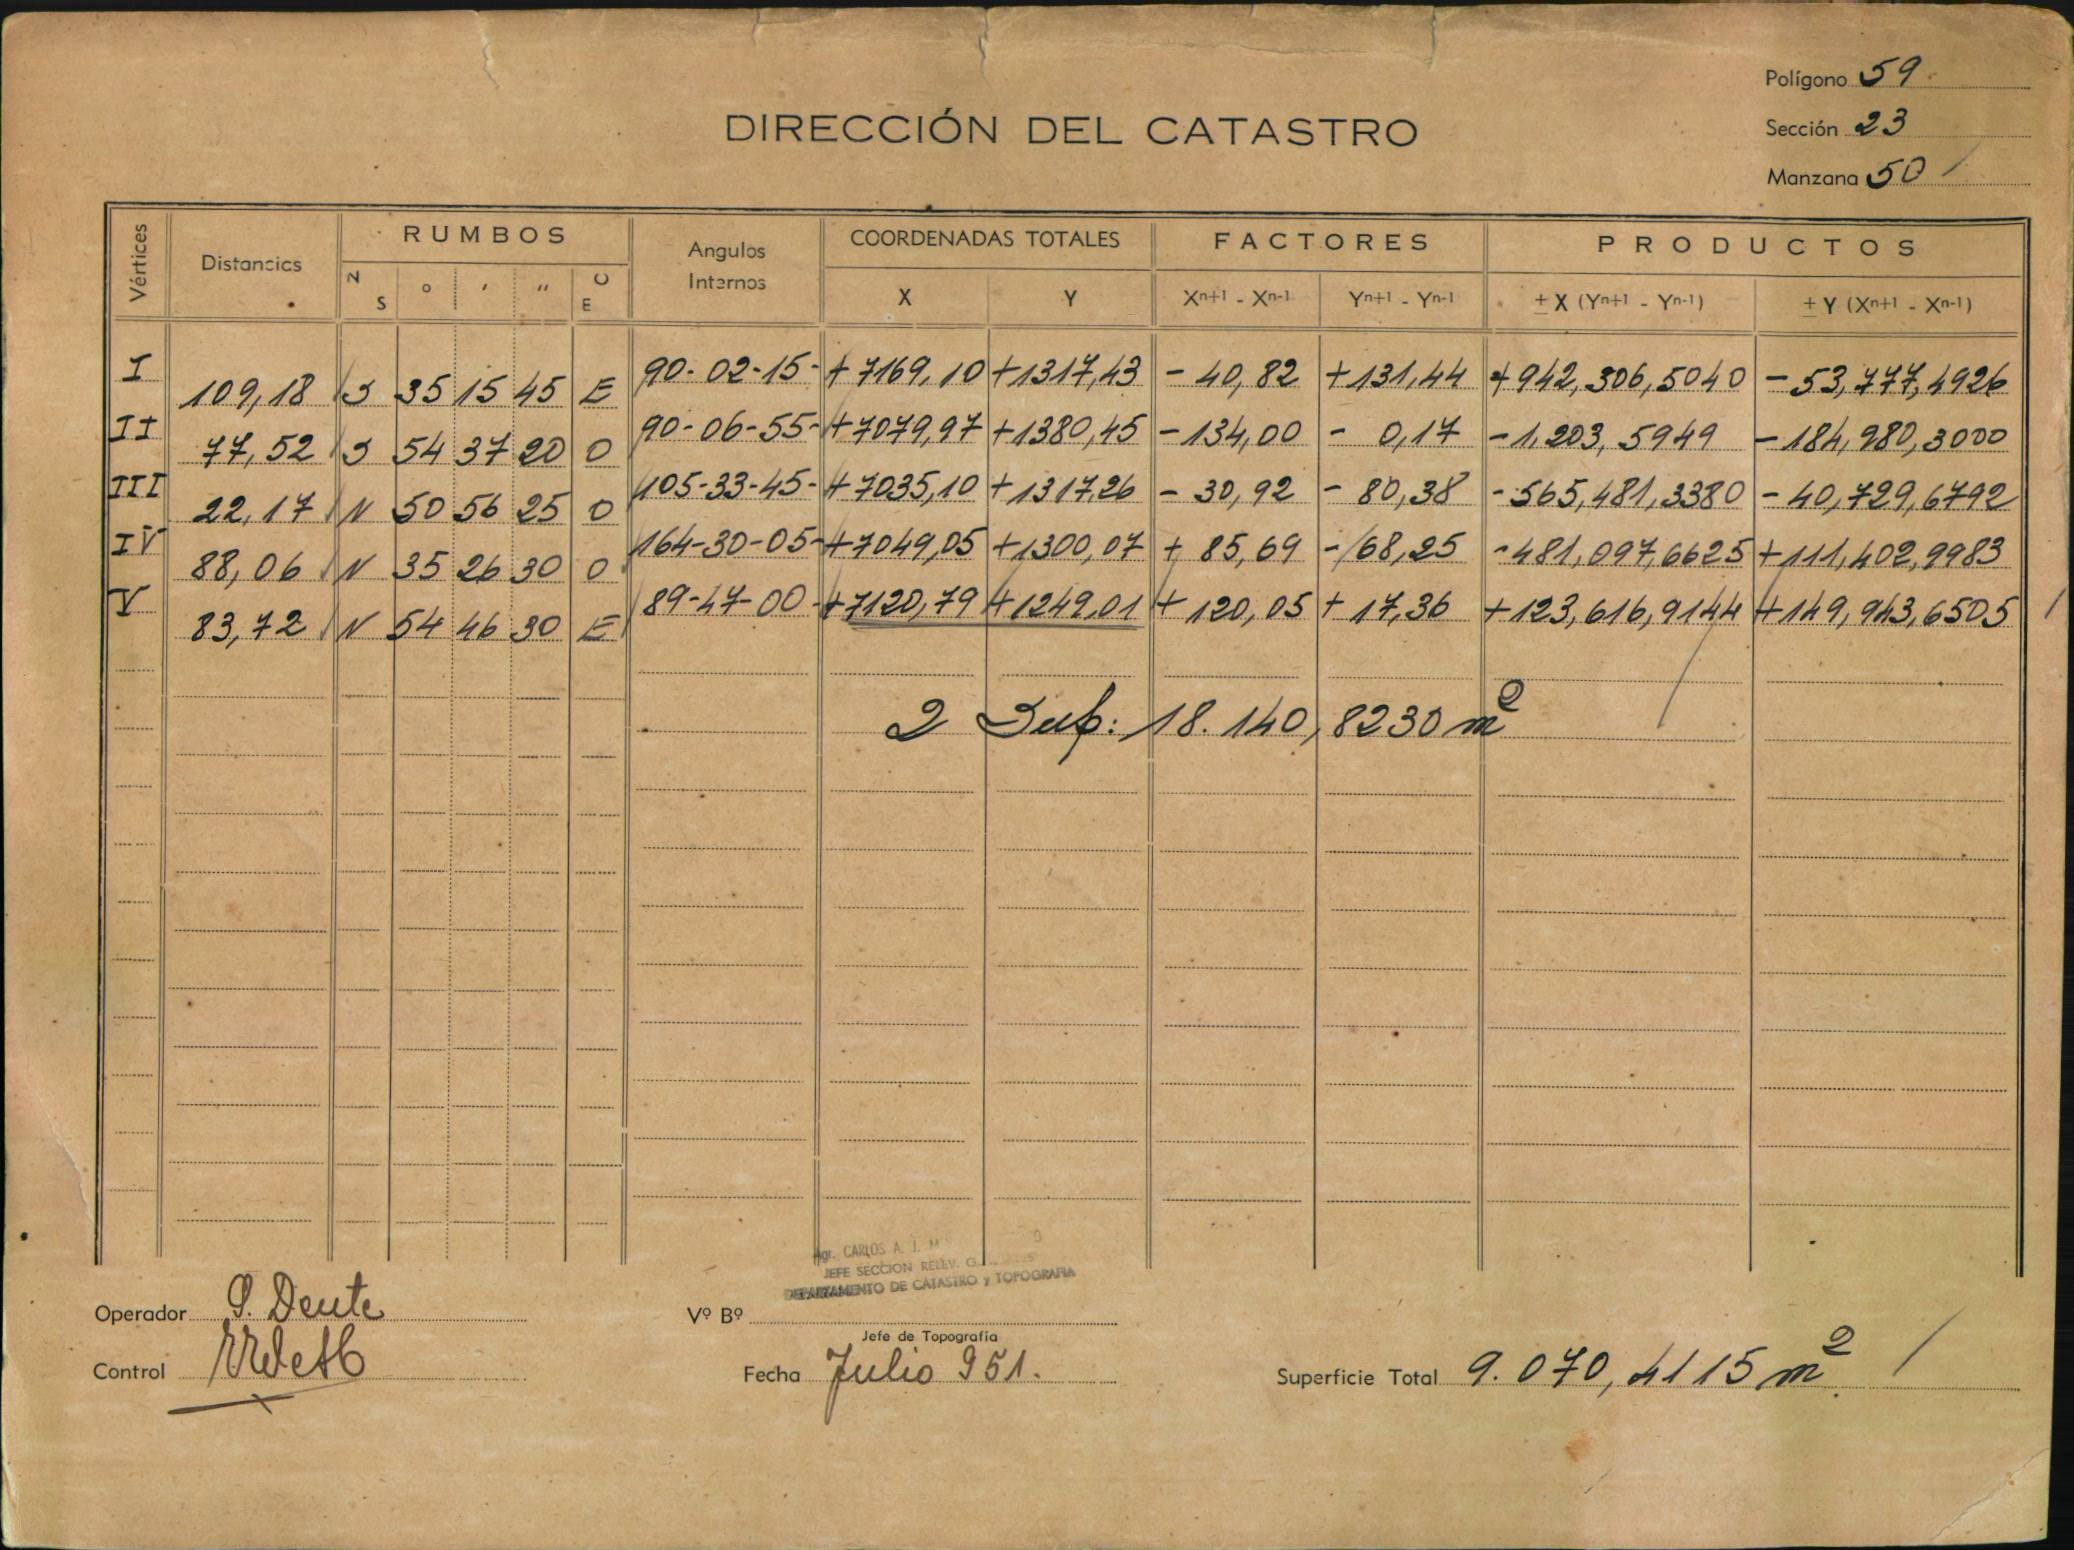 Polígono 59
DIRECCIÓN DEL CATASTRO
Sección 23
Manzana 50
Vértices Distancias RUMBOS Angulos Internos COORDENADAS TOTALES FACTORES PRODUCTOS
N S ° ′ ″ O E X Y Xn+1 - Xn-1 Yn+1 - Yn-1 ± X (Yn+1 - Yn-1) ± Y (Xn+1 - Xn-1)
I 90-02-15- +7169,10 +1317,43 - 40,82 +131,44 +942,306,5040 - 53,777,4926
109,18 S 35 15 45 E
II 90-06-55- +7079,97 +1380,45 -134,00 - 0,17 -1,203,5949 -184,980,3000
77,52 S 54 37 20 O
III 105-33-45- +7035,10 +1317,26 - 30,92 - 80,38 -565,481,3380 - 40,729,6792
22,17 N 50 56 25 O
IV 164-30-05- +7049,05 +1300,07 + 85,69 - 68,25 -481,097,6625 +111,402,9983
88,06 N 35 26 30 O
V 89-47-00- +7120,79 +1249,01 + 120,05 + 17,36 +123,616,9144 +149,943,6505
83,72 N 54 46 30 E
2 Sup: 18.140,8230 m²
Agr. CARLOS A. J.
JEFE SECCION RELEV.
DEPARTAMENTO DE CATASTRO y TOPOGRAFIA
Operador Deute
Vº Bº
Jefe de Topografía
Control
Fecha Julio 951.
Superficie Total 9.070,4115 m²